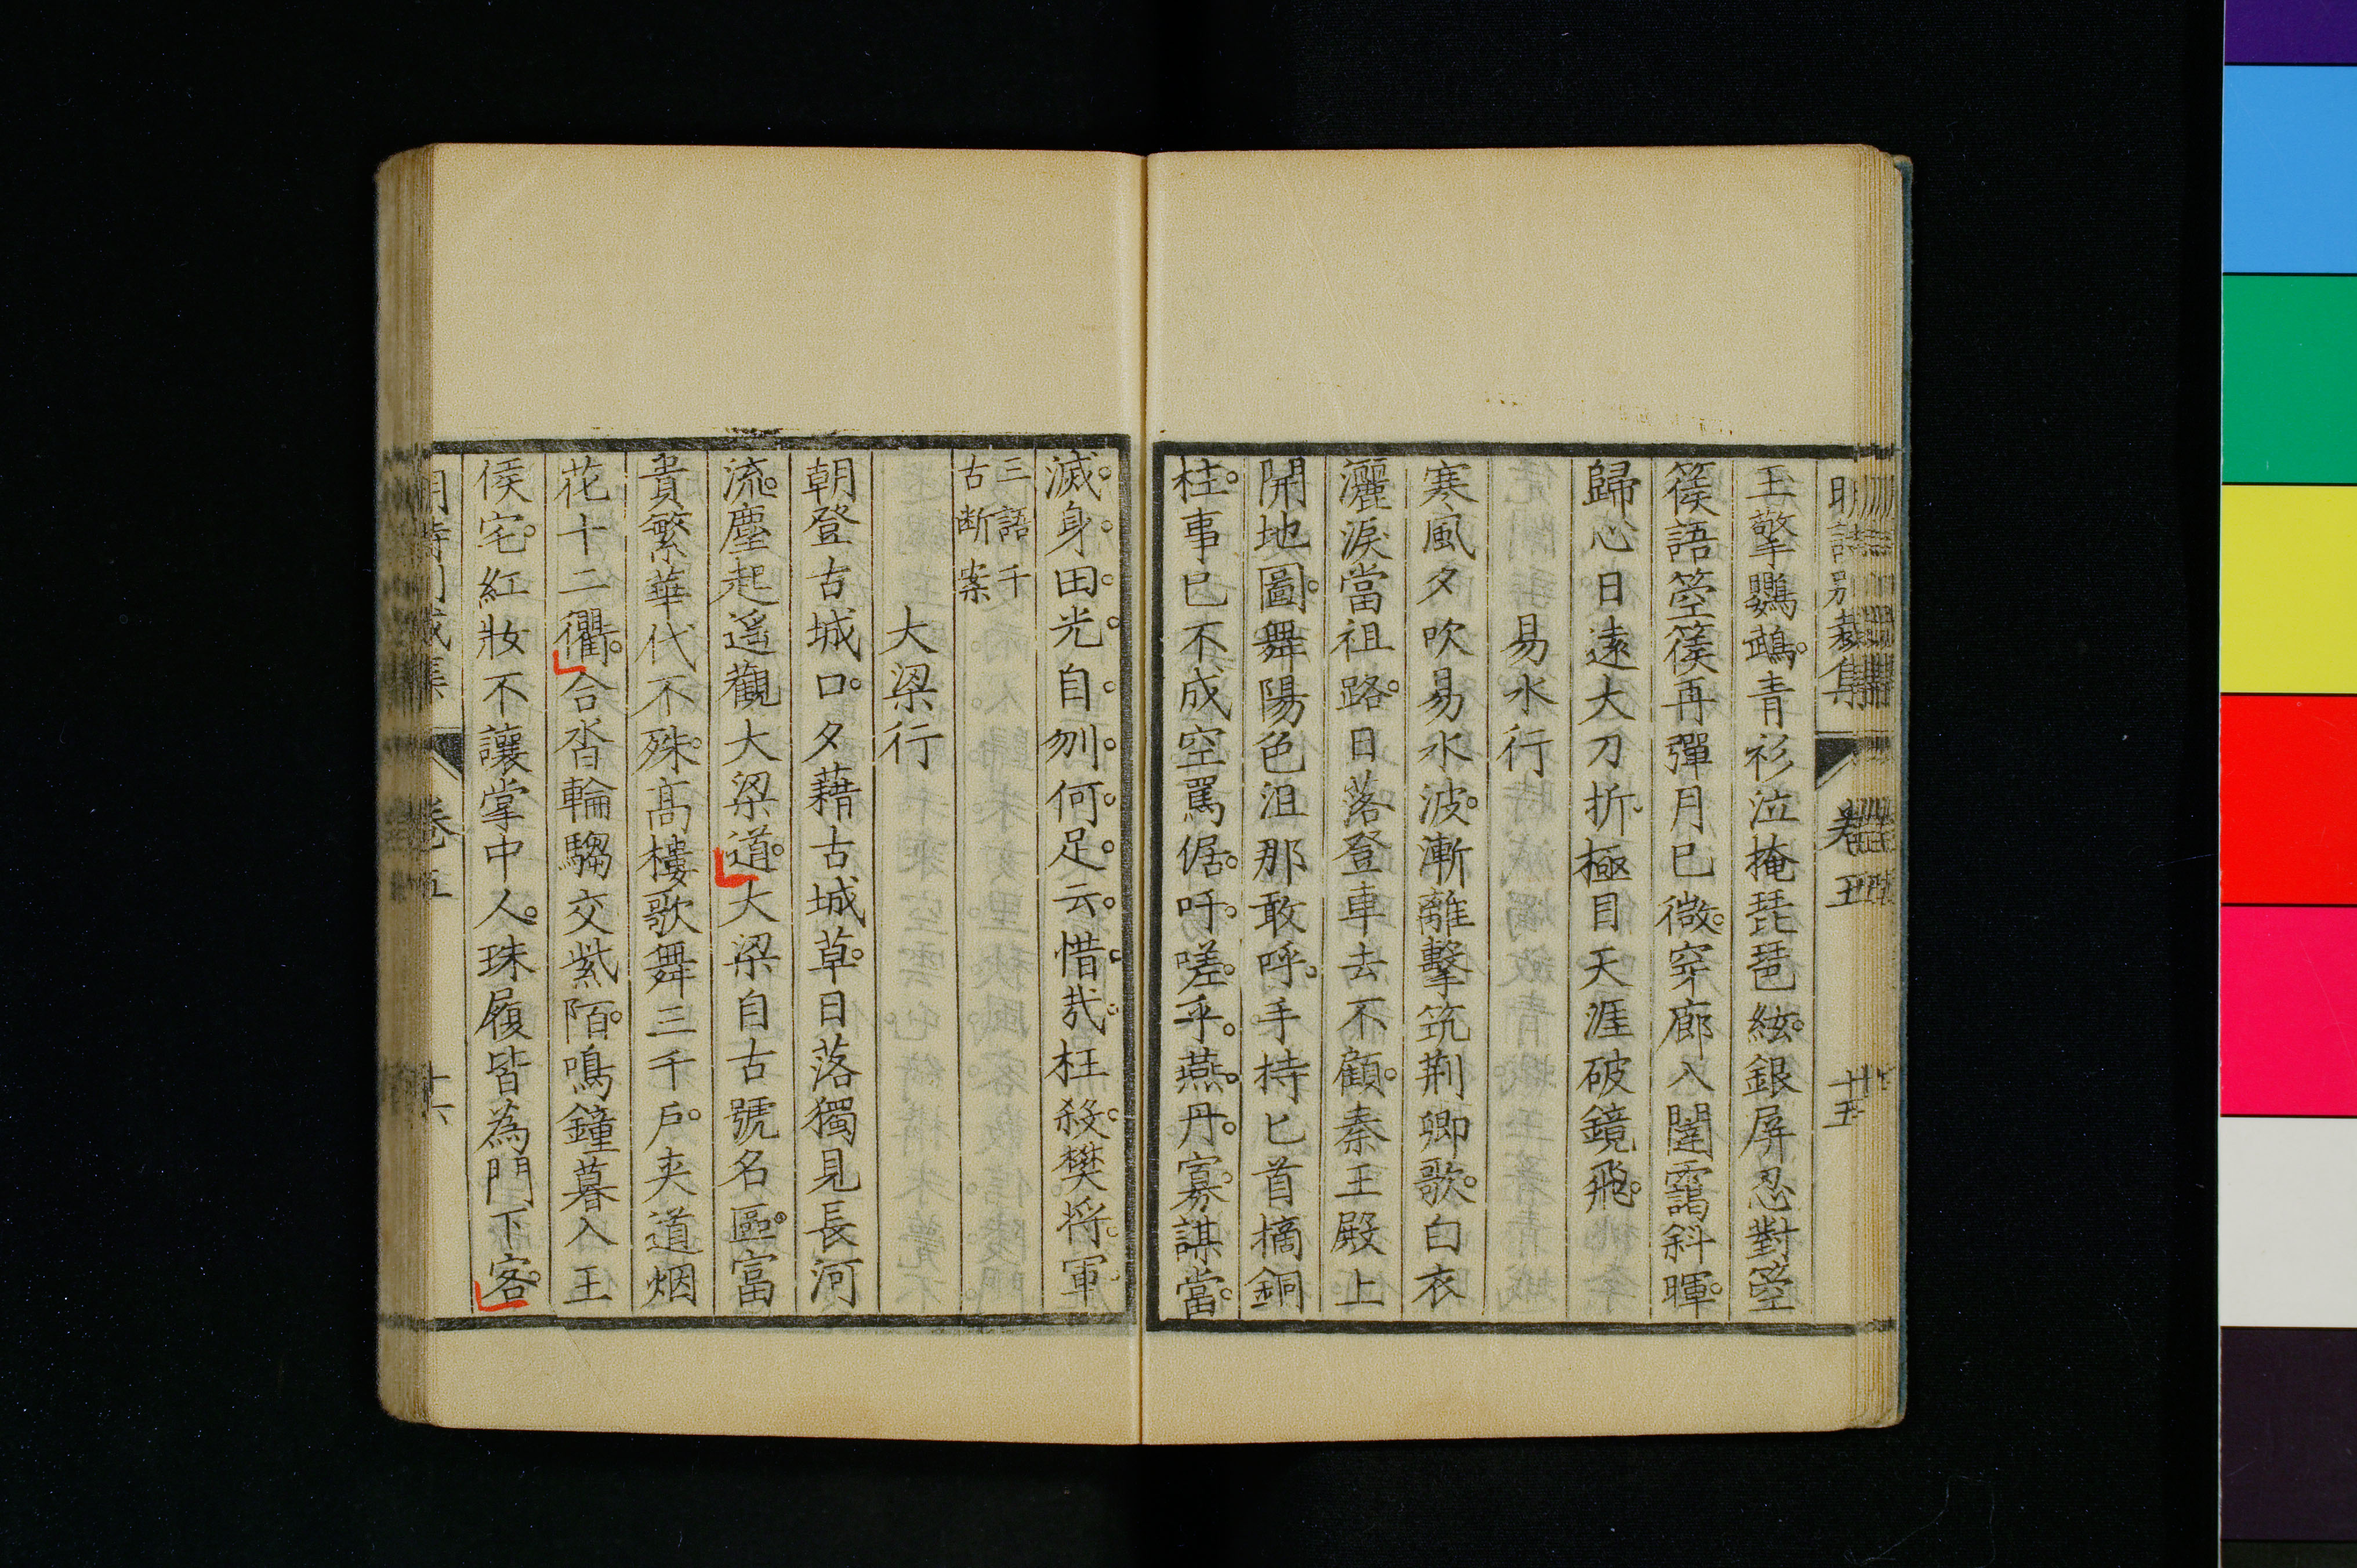 明詩別裁集 卷五 十五
玉擎鸚鵡。青衫泣掩琵琶絃。銀屏忍對箜
篌語。箜篌再彈月已微。穿廊入闥靄斜暉。
歸心日遠大刀折。極目天涯破鏡飛。
易水行
寒風夕吹易水波。漸離擊筑荆卿歌。白衣
灑淚當祖路。日落登車去不顧。秦王殿上
開地圖。舞陽色沮那敢呼。手持匕首摘銅
柱。事已不成空罵倨。吁嗟乎。燕丹寡謀當
滅身。田光自刎何足云。惜哉枉殺樊将軍
三語千
古断案
大梁行
朝登古城口。夕藉古城草。日落獨見長河
流。塵起遥觀大梁道。大梁自古號名區。富
貴繁華代不殊。高樓歌舞三千戶。夾道烟
花十二衢。合沓輪騶交紫陌。鳴鐘暮入王
侯宅。紅妝不讓掌中人。珠履皆為門下客。
明詩別裁集 卷五 十六